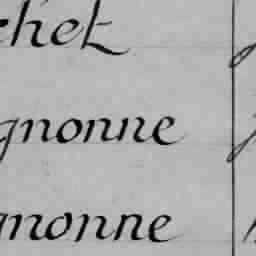 chet
gnonne
gnonne